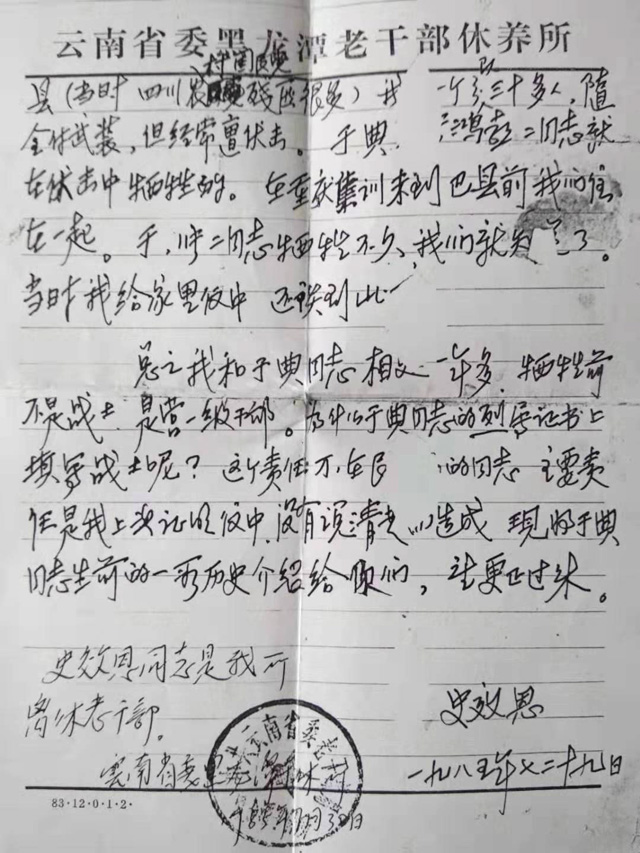 云南省委黑龙潭老干部休养所
县（当时四川农村国民党残匪很多）我一个队三十多人，随
全付武装，但经常遭伏击。于典 洪鸿彭二同志就
在伏击中牺牲的。在重庆集训来到巴县前我们住
在一起。于，洪二同志牺牲不久，我们就 了。
当时我给家里信中还谈到此
总之我和于典同志相交一年多，牺牲前
不是战士，是营一级干部。为什么于典同志的烈军证书上
填写战士呢？这个责任不在民 的同志 主要责
任是我上次证明信中，没有说清楚 造成 现将于典
同志生前的一段历史介绍给你们，请更正过来。
史效恩同志是我所
离休老干部。
史效恩
云南省委黑龙潭 休所
一九八五年七二十九日
83·12·0·1·2·